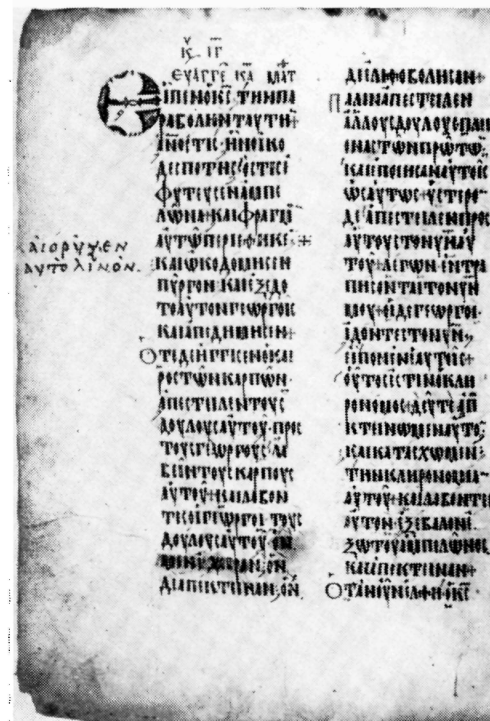 Κ ΙΓ
ΕΥΑΓΓΕ ΚΑ ΜΑΤ
ΕΙΠΕΝ Ο ΚϹ ΤΗΝ ΠΑ
ΡΑΒΟΛΗΝ ΤΑΥΤΗ+
ΑΝΟϹ ΤΙϹ ΗΝ ΟΙΚΟ
ΔΕϹΠΟΤΗϹ ΟϹΤΙϹ Ε
ΦΥΤΕΥϹΕΝ ΑΜΠΕ
ΛΩΝΑ+ ΚΑΙ ΦΡΑΓΜ
ΑΥΤΩ ΠΕΡΙΕΘΗΚΕ
ΚΑΙ ΩΚΟΔΟΜΗϹΕΝ
ΠΥΡΓΟΝ ΚΑΙ ΕΞΕΔΟ
ΤΟ ΑΥΤΟΝ ΓΕΩΡΓΟΙϹ
ΚΑΙ ΑΠΕΔΗΜΗϹΕΝ+
ΟΤΕ ΔΕ ΗΓΓΙϹΕΝ Ο ΚΑΙ
ΡΟϹ ΤΩΝ ΚΑΡΠΩΝ·
ΑΠΕϹΤΕΙΛΕΝ ΤΟΥϹ
ΔΟΥΛΟΥϹ ΑΥΤΟΥ· ΠΡΟϹ
ΤΟΥϹ ΓΕΩΡΓΟΥϹ ΛΑ
ΒΕΙΝ ΤΟΥϹ ΚΑΡΠΟΥϹ
ΑΥΤΟΥ+ ΚΑΙ ΛΑΒΟΝ
ΤΕϹ ΟΙ ΓΕΩΡΓΟΙ ΤΟΥϹ
ΔΟΥΛΟΥϹ ΑΥΤΟΥ ΟΝ
ΜΕΝ ΕΔΕΙΡΑΝ· ΟΝ
ΔΕ ΑΠΕΚΤΕΙΝΑΝ· ΟΝ
ΑΥΤΟ ΛΙΝΟΝ
ΔΕ ΕΛΙΘΟΒΟΛΗϹΑΝ+
ΠΑΛΙΝ ΑΠΕϹΤΕΙΛΕΝ
ΑΛΛΟΥϹ ΔΟΥΛΟΥϹ ΠΛΕΙ
ΟΝΑϹ ΤΩΝ ΠΡΩΤΩ
ΚΑΙ ΕΠΟΙΗϹΑΝ ΑΥΤΟΙϹ
ΩϹΑΥΤΩϹ+ ΥϹΤΕΡΟ
ΔΕ ΑΠΕϹΤΕΙΛΕΝ ΠΡΟϹ
ΑΥΤΟΥϹ ΤΟΝ ΥΝ ΑΥ
ΤΟΥ+ ΛΕΓΩΝ ΕΝΤΡΑ
ΠΗϹΟΝΤΑΙ ΤΟΝ ΥΝ
ΜΟΥ+ ΟΙ ΔΕ ΓΕΩΡΓΟΙ·
ΙΔΟΝΤΕϹ ΤΟΝ ΥΝ·
ΕΙΠΟΝ ΕΝ ΕΑΥΤΟΙϹ+
ΟΥΤΟϹ ΕϹΤΙΝ Ο ΚΛΗ
ΡΟΝΟΜΟϹ+ ΔΕΥΤΕ ΑΠ
ΚΤΕΙΝΩΜΕΝ ΑΥΤΟ
ΚΑΙ ΚΑΤΑϹΧΩΜΕΝ
ΤΗΝ ΚΛΗΡΟΝΟΜΙΑ
ΑΥΤΟΥ+ ΚΑΙ ΛΑΒΟΝΤΕϹ
ΑΥΤΟΝ ΕΞΕΒΑΛΟΝ Ε
ΞΩ ΤΟΥ ΑΜΠΕΛΩΝΟϹ
ΚΑΙ ΑΠΕΚΤΕΙΝΑΝ+
ΟΤΑΝ ΟΥΝ ΕΛΘΗ Ο ΚϹ